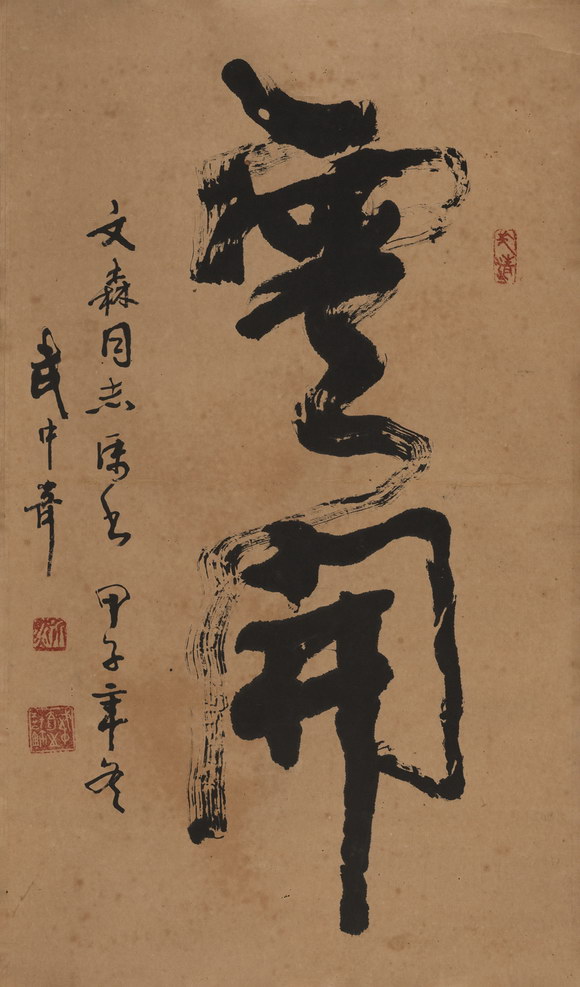 雲開
文森同志属書 甲子年冬
武中奇